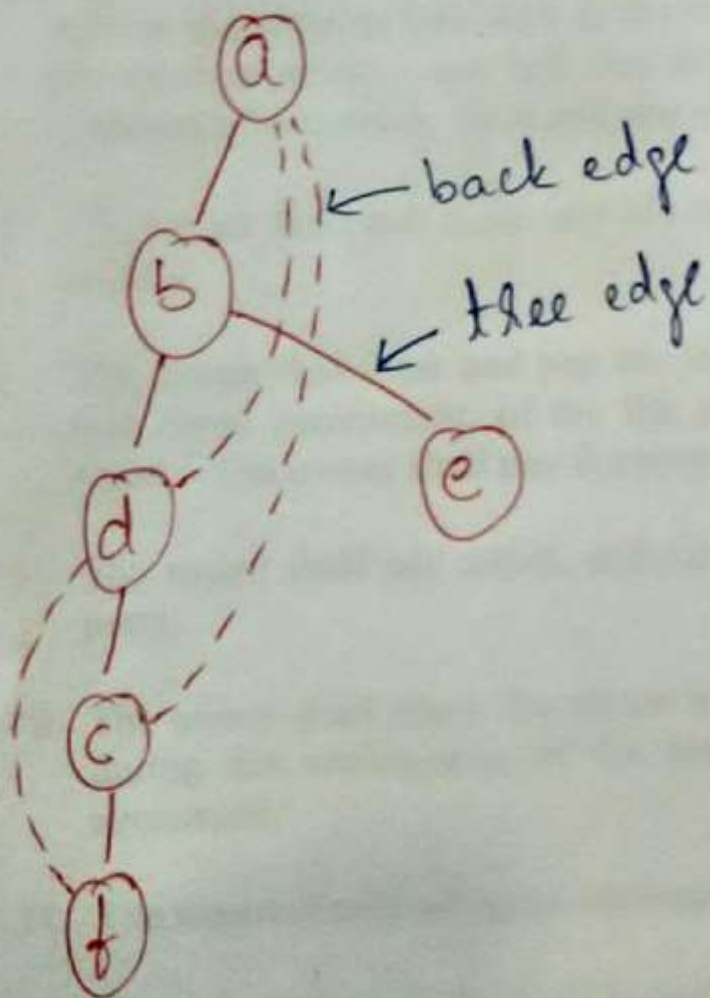 a
back edge
b
tree edge
e
d
c
f